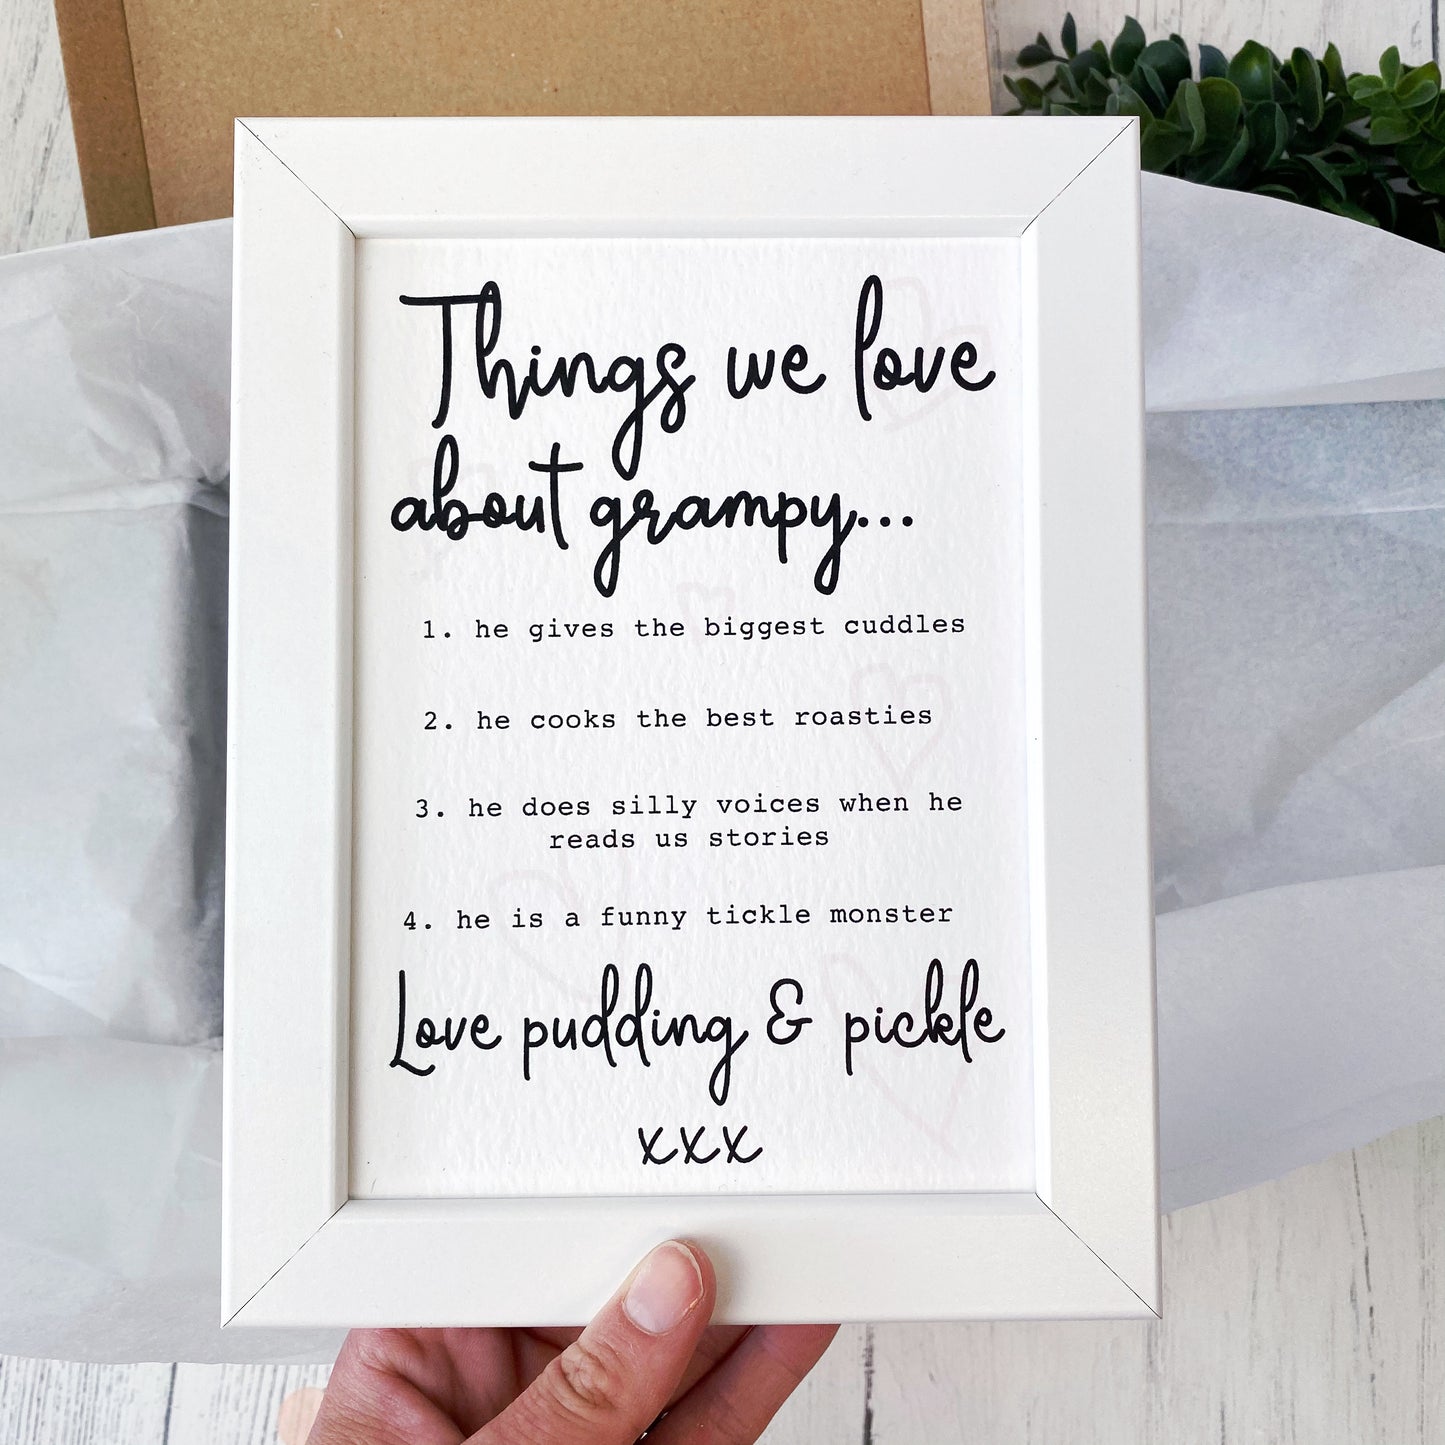 Things we love
about grampy...
1. he gives the biggest cuddles
2. he cooks the best roasties
3. he does silly voices when he
reads us stories
4. he is a funny tickle monster
Love pudding & pickle
xxx